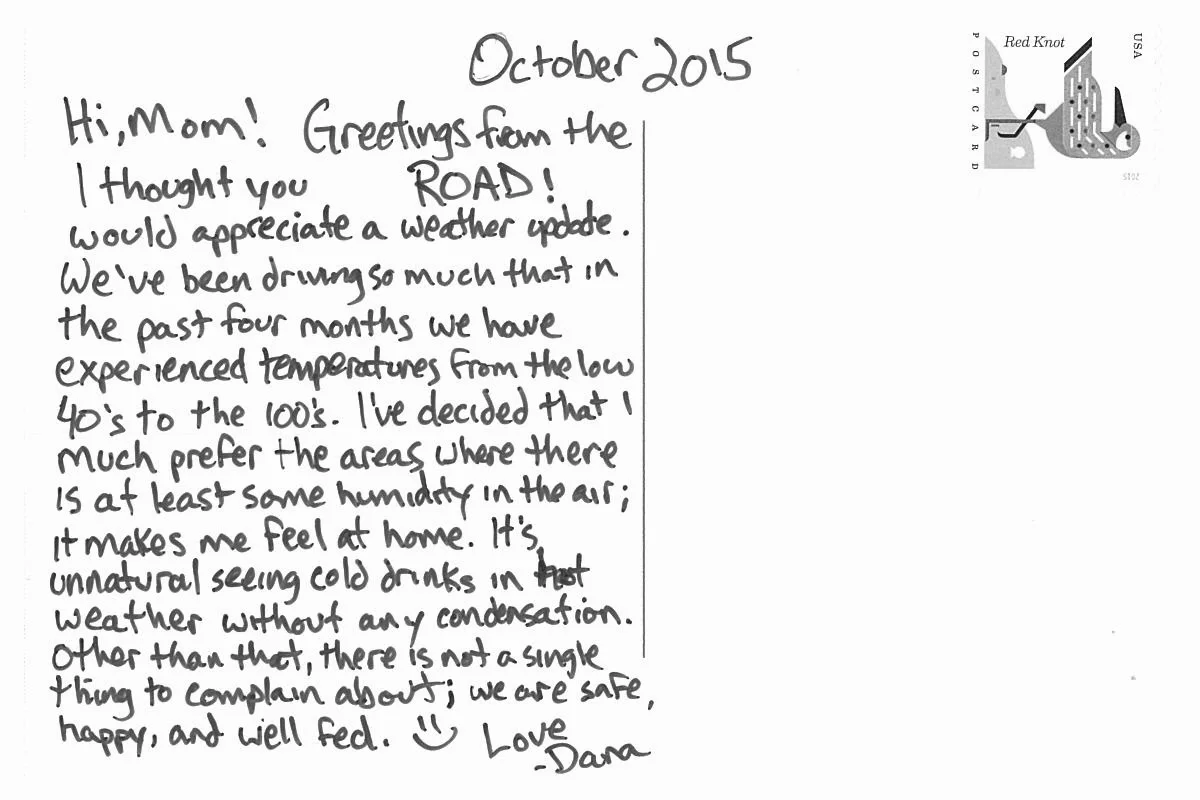 October 2015
Hi, Mom! Greetings from the
ROAD!
I thought you
would appreciate a weather update.
We've been driving so much that in
the past four months we have
experienced temperatures from the low
40's to the 100's. I've decided that I
much prefer the areas where there
is at least some humidity in the air;
it makes me feel at home. It's
unnatural seeing cold drinks in hot
weather without any condensation.
Other than that, there is not a single
thing to complain about; we are safe,
happy, and well fed. Love
-Dana
POSTCARD
Red Knot
USA
2015